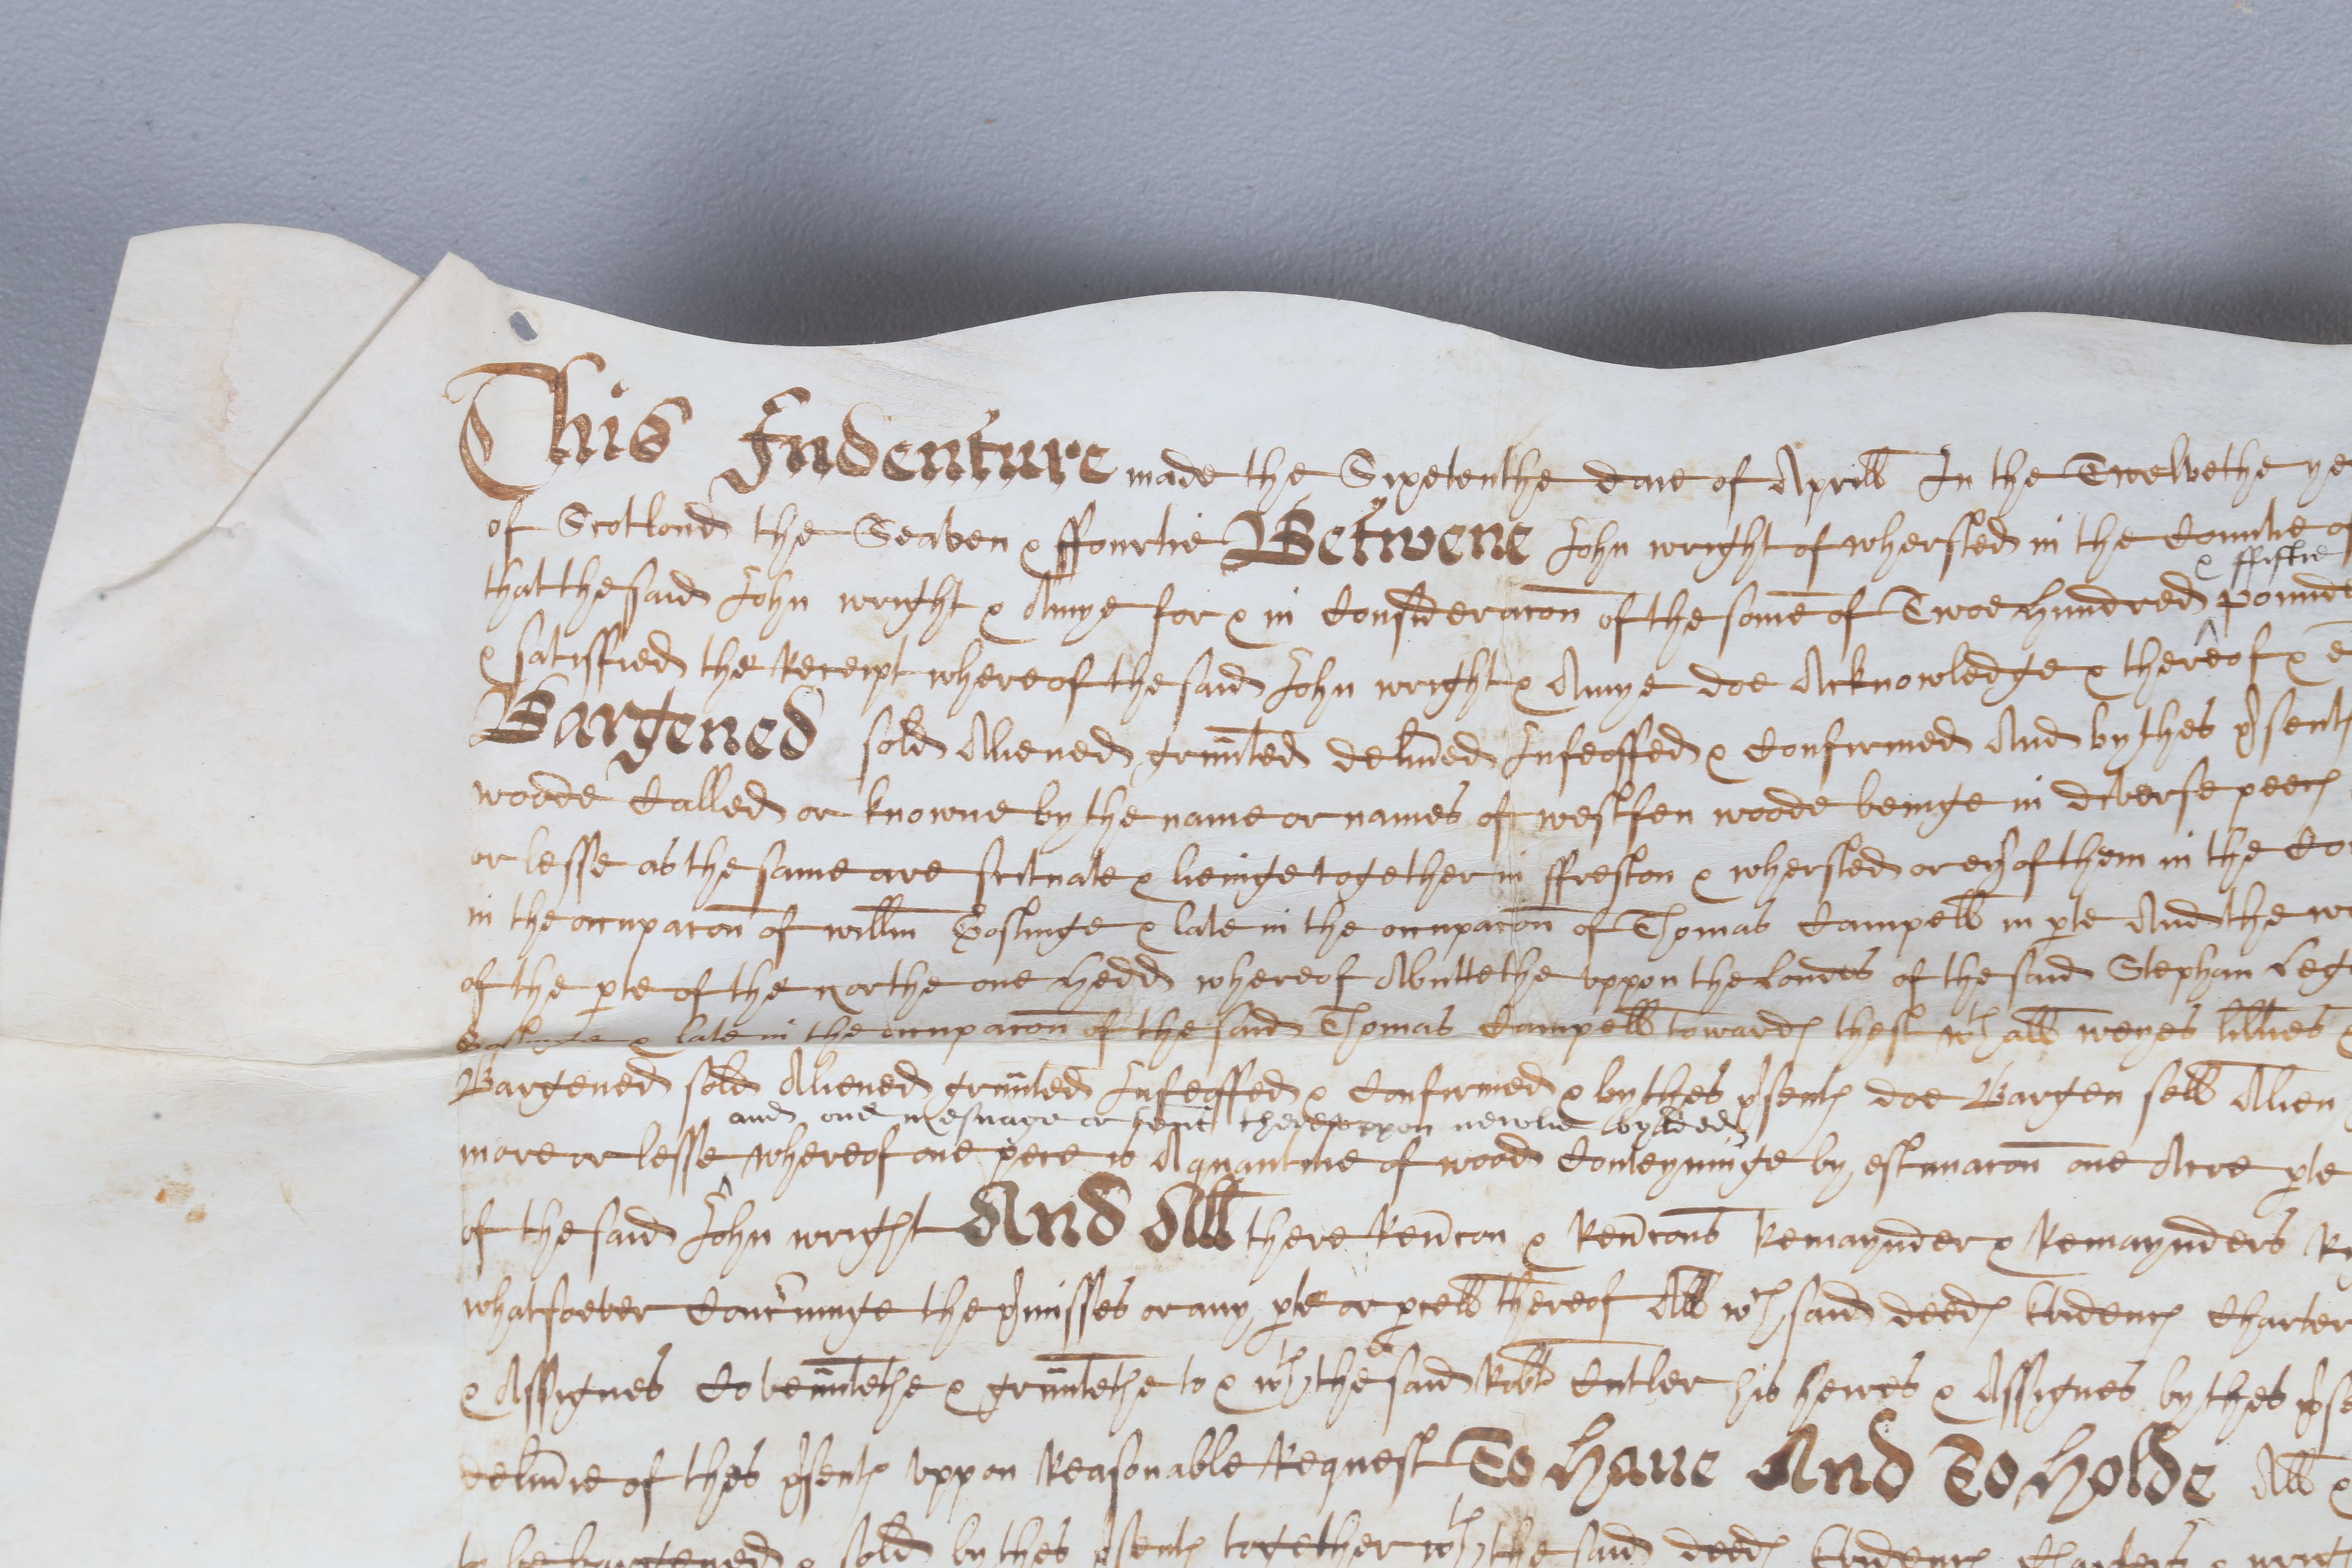 This Indenture made the Sixetenthe daie of Aprill In the Twelvethe ye
of Scotland the Seaven & ffourtie Betwene John wright of whersted in the Countie of
& ffiftie
that the said John wright & Amye for & in Consideracon of the some of Twoe Hundred pounde
& satisfied the Receipt whereof the said John wright & Amye doe Acknowledge & thereof &
Bargened sold Aliened graunted deliued Infeoffed & Confirmed And by thes psent
woode Called or knowne by the name or names of westfen woode beinge in diverse peec
or lesse as the same are scituate & lieinge together in ffreston & whersted or eyof them in the Co
in the occupacon of willm Goslinge & late in the occupacon of Thomas Campell in pte And the
of the pte of the northe one Hedd whereof Abuttethe uppon the Landes of the said Stephan
Goslinge & late in the occupacon of the said Thomas Campell toward thest wth all weyes
Bargened sold Aliened graunted Infeoffed & Confirmed & by thes psent doe Bargen sell Alien
and one Mesuage or thereuppon newlie bylded
more or lesse whereof one pece or Aquantitie of wood Conteyninge by estimacon one Acre pte
of the said John wright And All there Reucon & Reucons Remaynder & Remaynders
whatsoever Concninge the pmisses or any pte or pcell thereof All wch said deed Evidenc Charter
& Assignes Covenntethe & grauntethe to & wth the said Robt Cutler his heires & Assignes by thes pse
deliuie of thes psent Uppon Reasonable Request To Haue And To Holde All &
to be bargened & sold by thes psent together wth the said deed Evidenc Charters